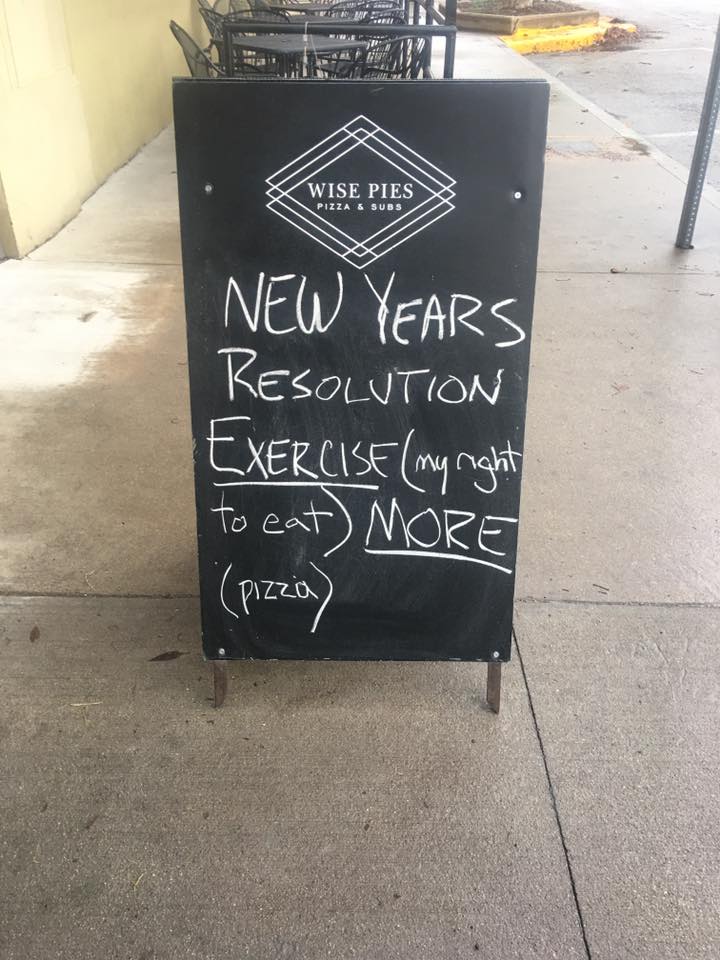 WISE PIES
PIZZA & SUBS
NEW YEARS
RESOLUTION
EXERCISE (my right
to eat) MORE
(pizza)